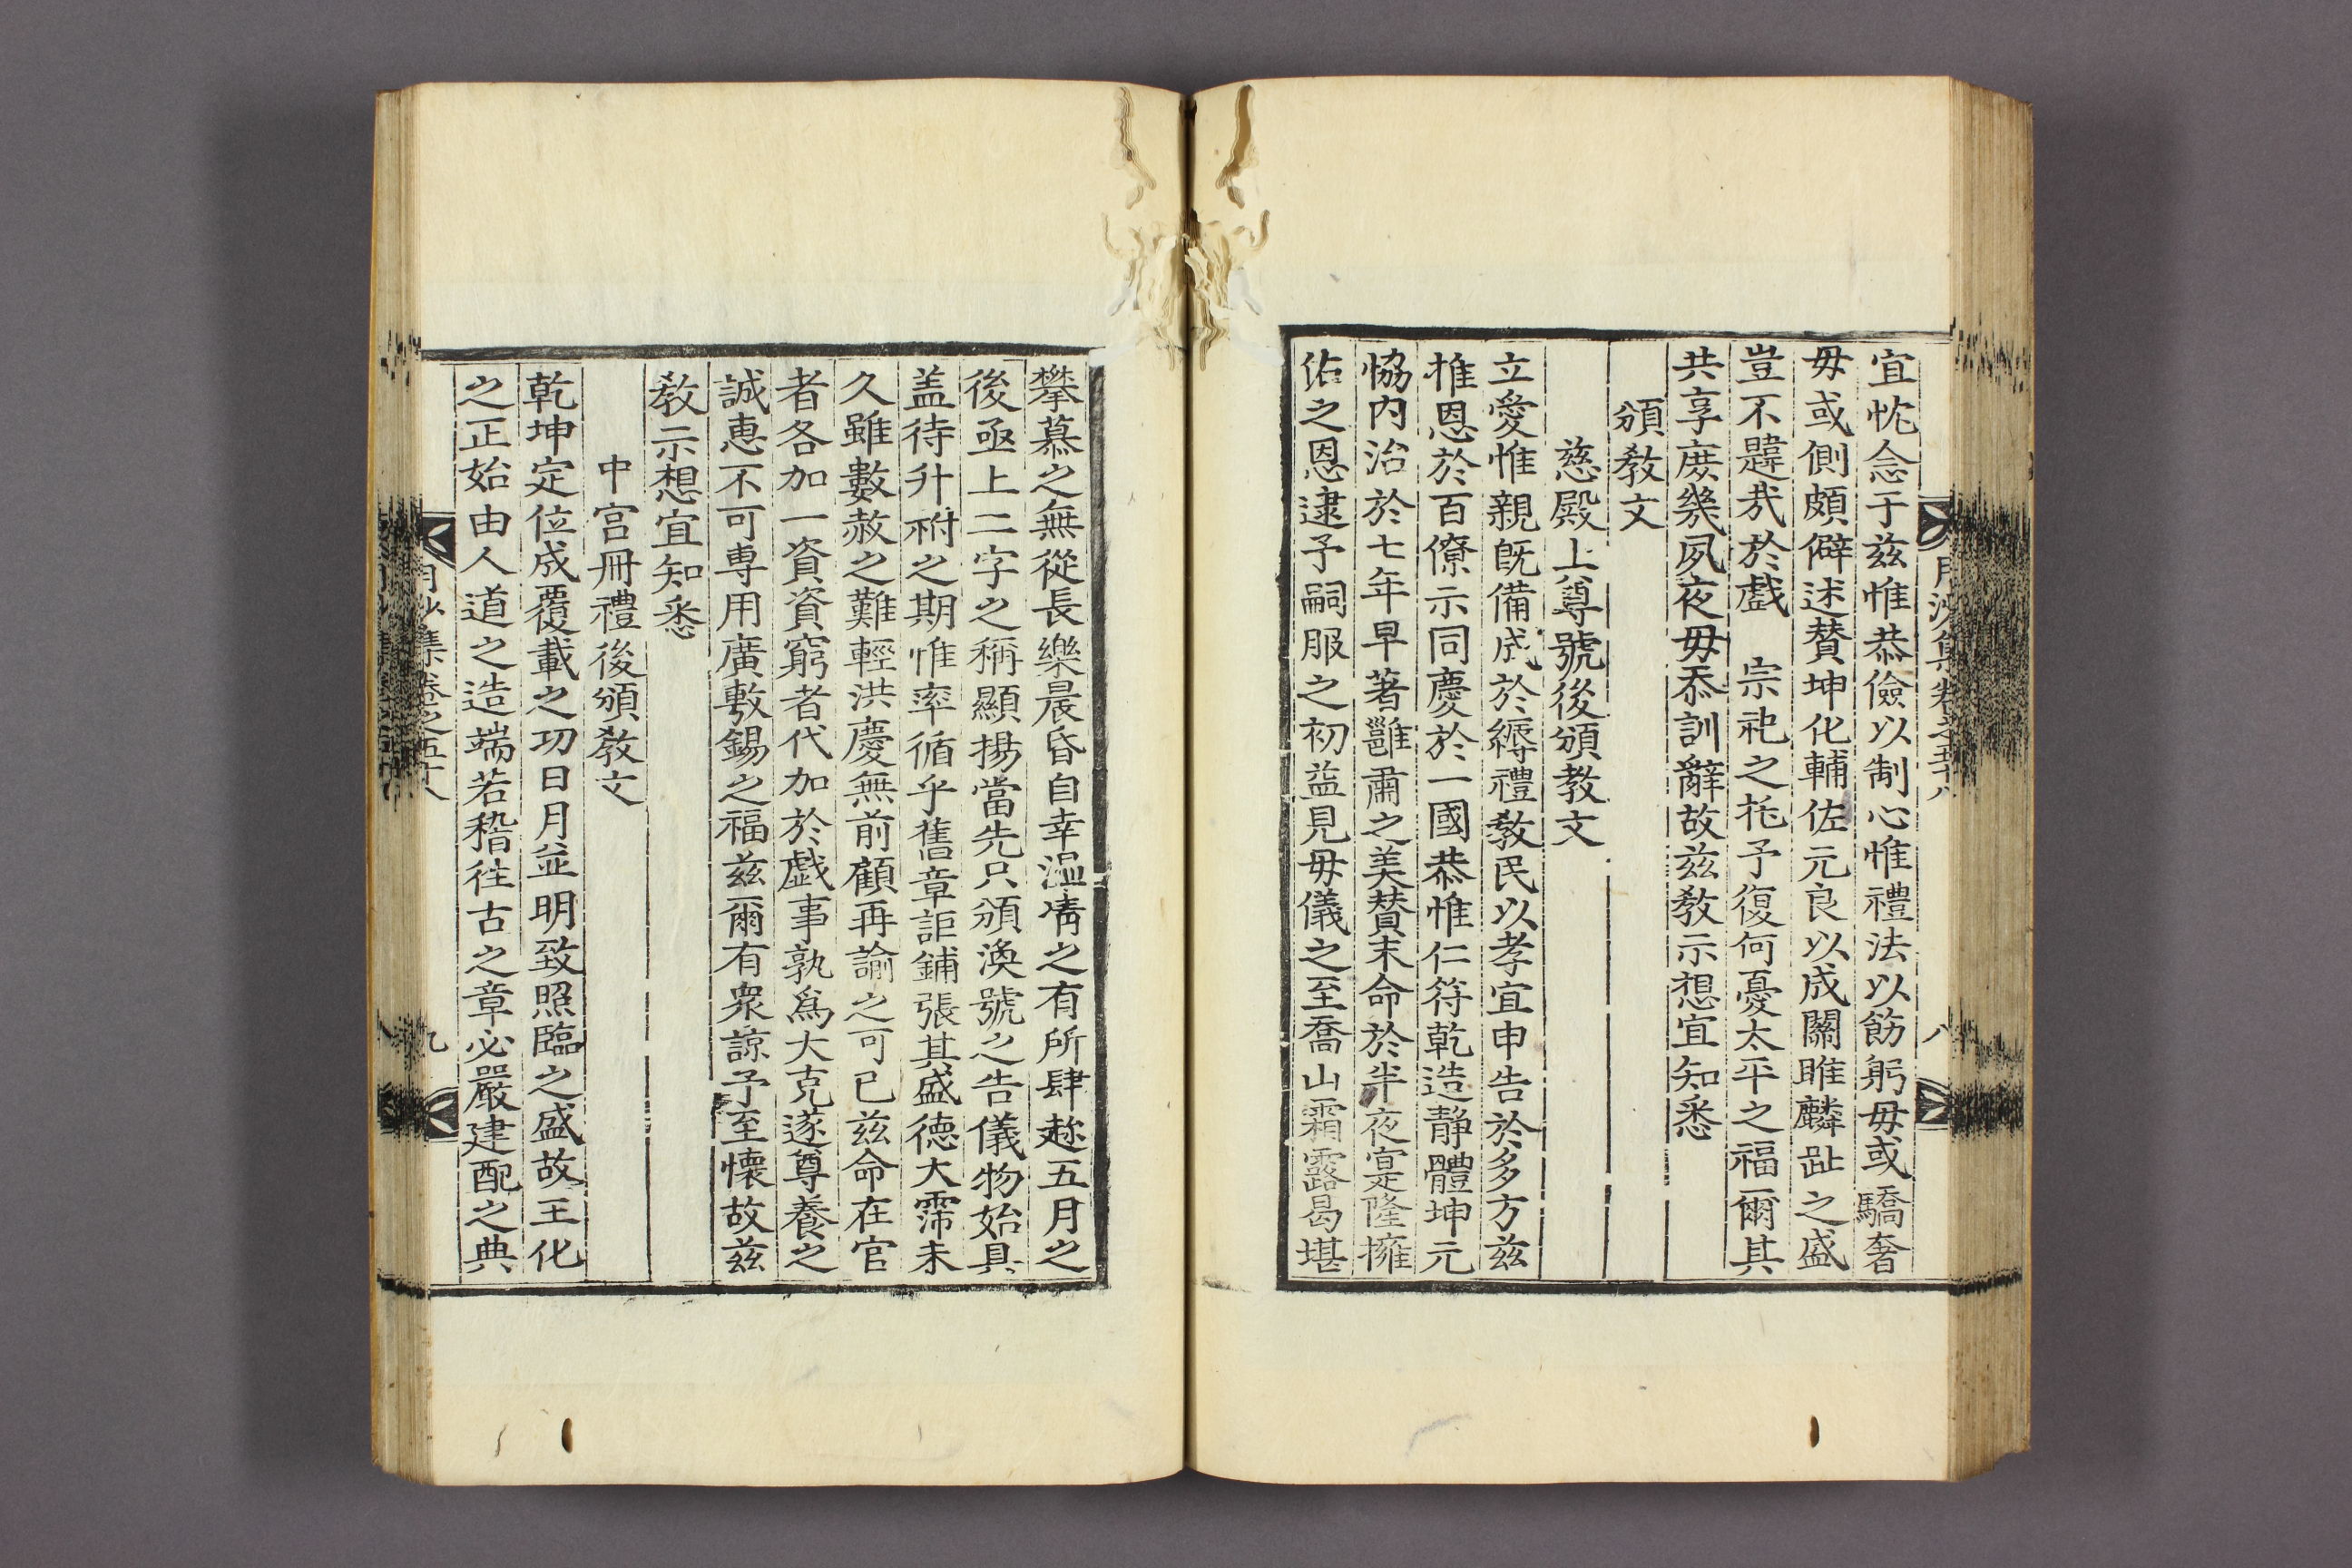 宜忱念于玆惟恭儉以制心惟禮法以飭躬毋或驕奢
毋或側頗僻述賛坤化輔佐元良以成關雎麟趾之盛
豈不韙㦲於戲 宗祀之托予復何憂太平之福爾其
共享庶幾夙夜毋忝訓辭故玆敎示想宜知悉
頒敎文
慈殿上尊號後頒敎文
立愛惟親旣備成於縟禮敎民以孝宜申告於多方玆
推恩於百僚示同慶於一國恭惟仁符乾造靜體坤元
恊內治於七年早著雝肅之美賛末命於半夜寔隆擁
佑之恩逮予嗣服之初益見毋儀之至喬山霜露曷堪
攀慕之無從長樂晨昏自幸溫凊之有所肆趂五月之
後亟上二字之稱顯揚當先只頒渙號之告儀物始具
盖待升祔之期惟率循乎舊章詎鋪張其盛德大霈未
久雖數赦之難輕洪慶無前顧再諭之可已玆命在官
者各加一資資窮者代加於戯事孰爲大克遂尊養之
誠惠不可專用廣敷錫之福玆爾有衆諒予至懷故玆
敎示想宜知悉
中宮冊禮後頒敎文
乾坤定位成覆載之功日月並明致照臨之盛故王化
之正始由人道之造端若稽徃古之章必嚴建配之典
月沙集卷之五十八
八
月沙集卷之五十八
九